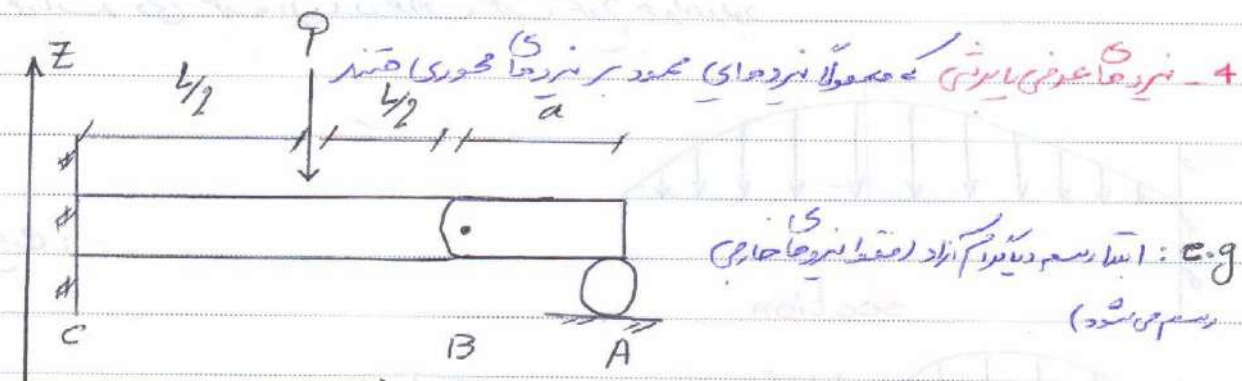 4 - نیروهای عرضی یا برشی که معمولاً نیروهای عمود بر نیروهای محوری هستند
P
Z
L/2 L/2 a
e.g : ابتدا رسم دیاگرام آزاد (فقط نیروهای خارجی
رسم می‌شود)
C B A